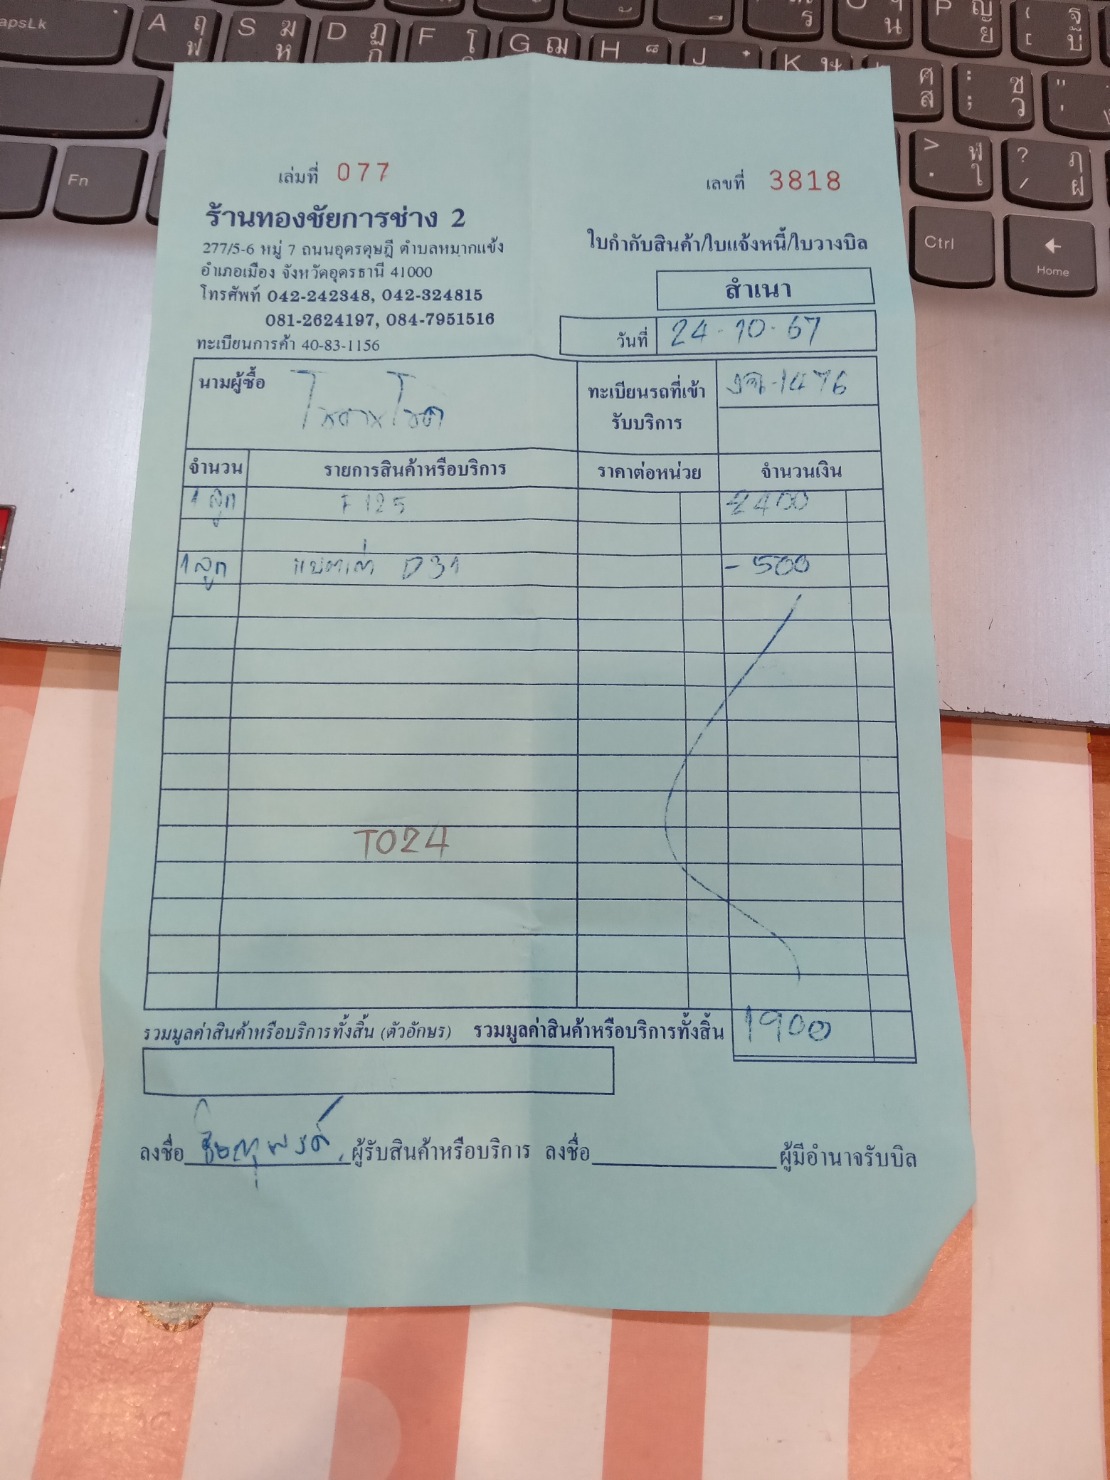 เล่มที่ 077
เลขที่ 3818
ร้านทองชัยการช่าง 2
277/5-6 หมู่ 7 ถนนอุดรดุษฎี ตำบลหมากแข้ง
อำเภอเมือง จังหวัดอุดรธานี 41000
โทรศัพท์ 042-242348, 042-324815
081-2624197, 084-7951516
ทะเบียนการค้า 40-83-1156
ใบกำกับสินค้า/ใบแจ้งหนี้/ใบวางบิล
สำเนา
วันที่ 24-10-67
นามผู้ซื้อ
ทะเบียนรถที่เข้า
รับบริการ
1476
จำนวน รายการสินค้าหรือบริการ ราคาต่อหน่วย จำนวนเงิน
1 ลูก F 125 2400
1 ลูก แบตเก่า D31 - 500
T024
รวมมูลค่าสินค้าหรือบริการทั้งสิ้น (ตัวอักษร) รวมมูลค่าสินค้าหรือบริการทั้งสิ้น 1900
ลงชื่อ ผู้รับสินค้าหรือบริการ ลงชื่อ ผู้มีอำนาจรับบิล
apsLk
A ฤ ฟ
S ฆ ห
D ฏ ก
F โ
G ฌ
H
J
K ษ
ศ ส
: ; ซ ว
P ญ ย
ฐ บ
Fn
> . ฬ ใ
? / ฦ ฝ
Ctrl
Home